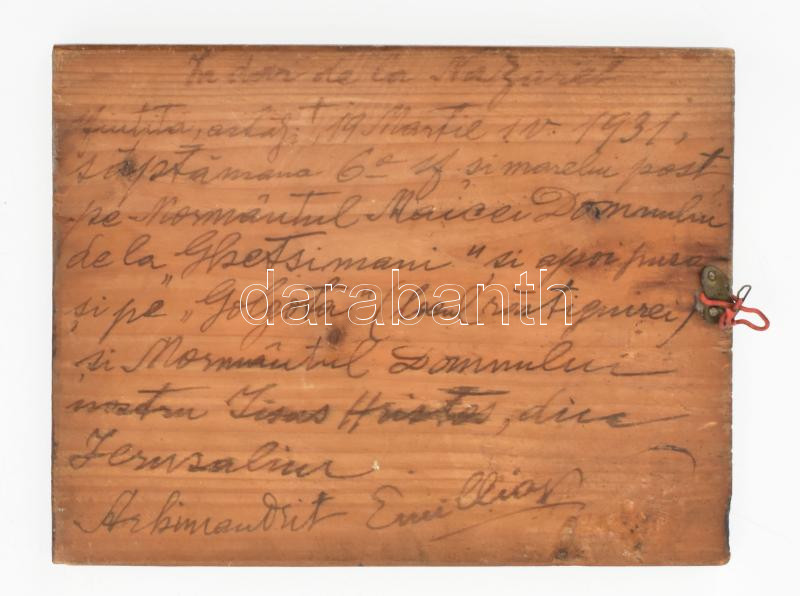 In dar de la Nazaret
sfintita, astăzi 19 Martie 1931,
săptămâna 6-a sf. si marelui post
pe Mormântul Maicei Domnului
de la "Ghetsimani" si apoi pusa
si pe "Golgota" (locul răstignirei)
si Mormântul Domnului
nostru Iisus Hristos, din
Ierusalim.
Arhimandrit
darabanth.com